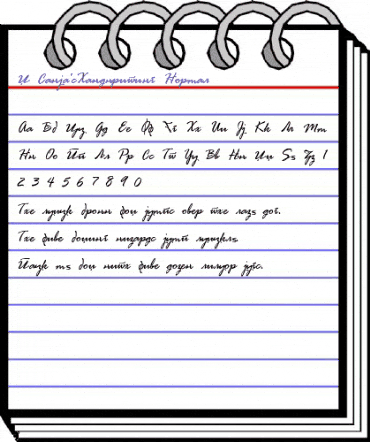 Ц Сања'сХандњритинг Нормал
Аа Бб Цц Дд Ее Фф Гг Хх Ии Јј Кк Лл Мм
Нн Оо Пп Љљ Рр Сс Тт Уу Вв Њњ Џџ Ѕѕ Зз 1
2 3 4 5 6 7 8 9 0
Тхе љуицк броњн фоџ јумпс овер тхе лазѕ дог.
Тхе фиве боџинг њизардс јумп љуицклѕ.
Пацк мѕ боџ њитх фиве дозен лиљуор југс.